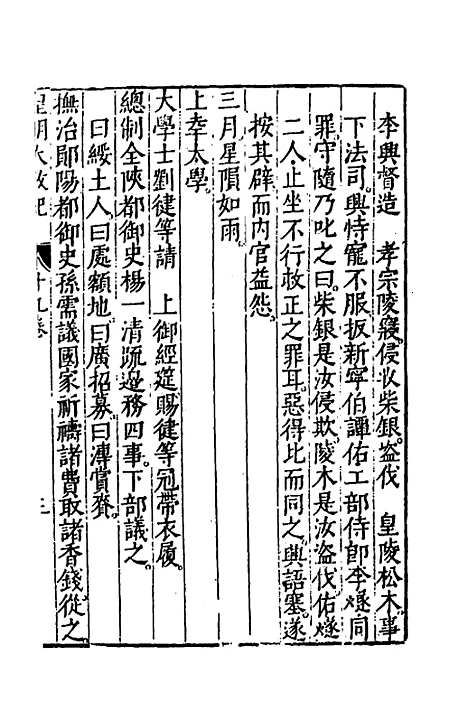 李興督造　孝宗陵寢侵收柴銀盜伐　皇陵松木事
下法司興恃寵不服扳新寧伯譚佑工部侍郎李𨩆同
罪守隨乃叱之曰柴銀是汝侵欺陵木是汝盜伐佑𨩆
二人止坐不行救正之罪耳惡得比而同之興語塞遂
按其辟而內官益怨
三月星隕如雨
上幸太學
大學士劉健等請　上御經筵賜健等冠帶衣履
總制全陝都御史楊一清疏邊務四事下部議之
曰綏土人曰處額地曰廣招募曰溥賞賚
撫治鄖陽都御史孫需議國家祈禱諸費取諸香錢從之
皇明大政記　十九卷　三